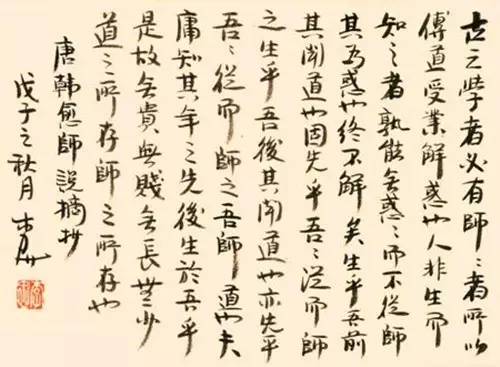 古之學者必有師〻者所以
傳道受業解惑也人非生而
知之者孰能無惑〻而不從師
其為惑也終不解矣生乎吾前
其聞道也固先乎吾〻從而師
之生乎吾後其聞道也亦先乎
吾〻從而師之吾師道也夫
庸知其年之先後生於吾乎
是故無貴無賤無長無少
道之所存師之所存也
唐韓愈師說摘抄
戊子之秋月